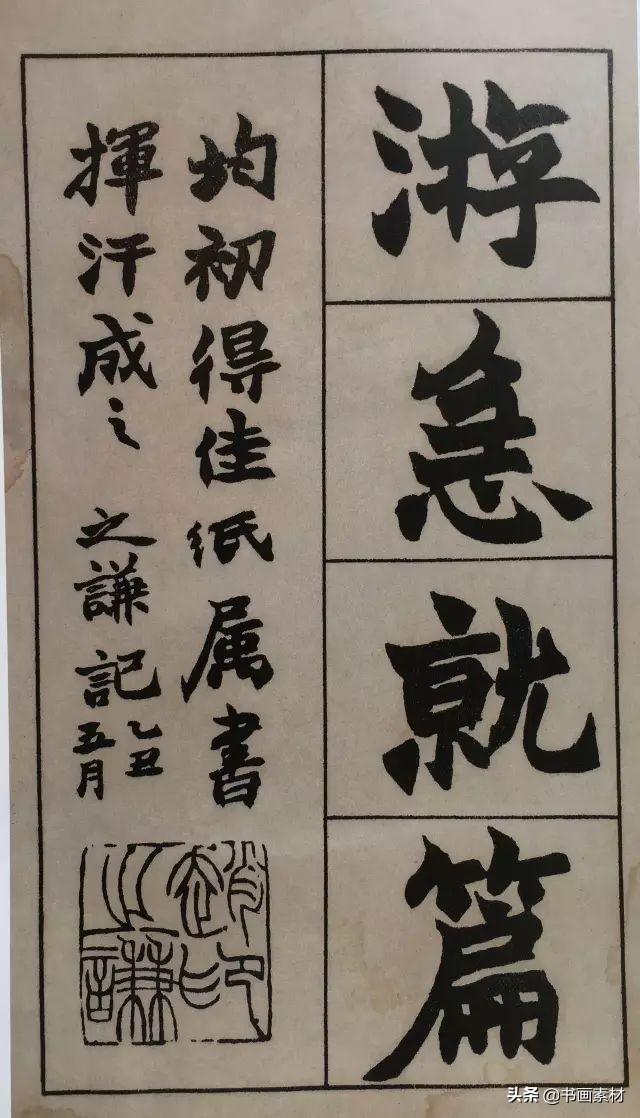 游急就篇
均初得佳紙属書
揮汗成之 之謙記 乙丑
五月
趙之謙印
头条 @书画素材